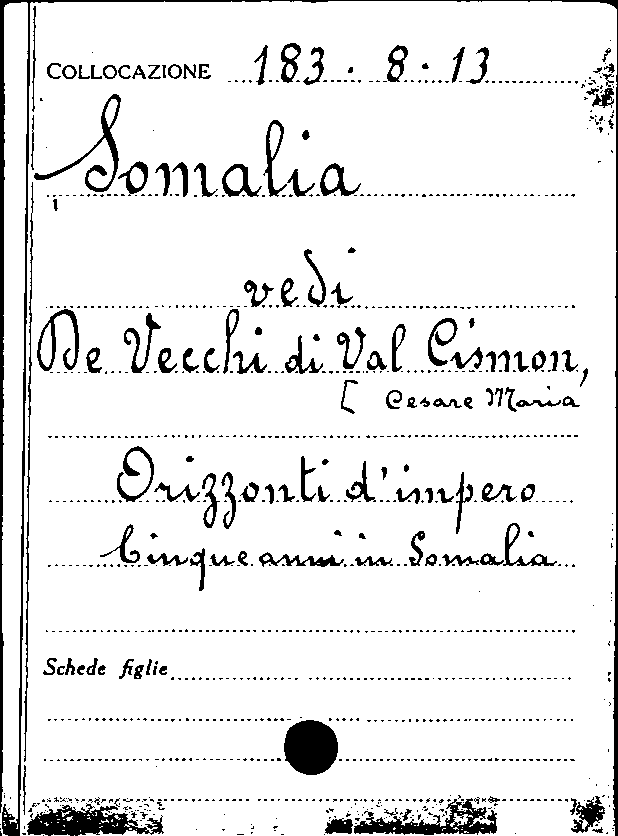 COLLOCAZIONE 183 . 8 . 13
Somalia
vedi
De Vecchi di Val Cismon,
[ Cesare Maria
Orizzonti d'impero
Cinque anni in Somalia
Schede figlie